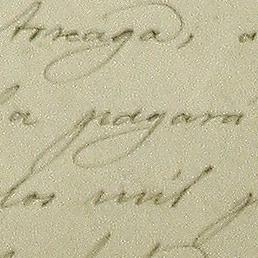 Arriaga, a
la pagará
dos mil p